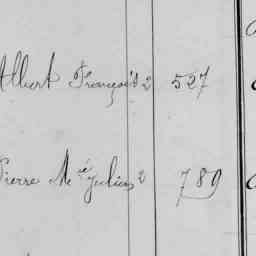 Albert François 2 527
Pierre Mé Julien 2 789